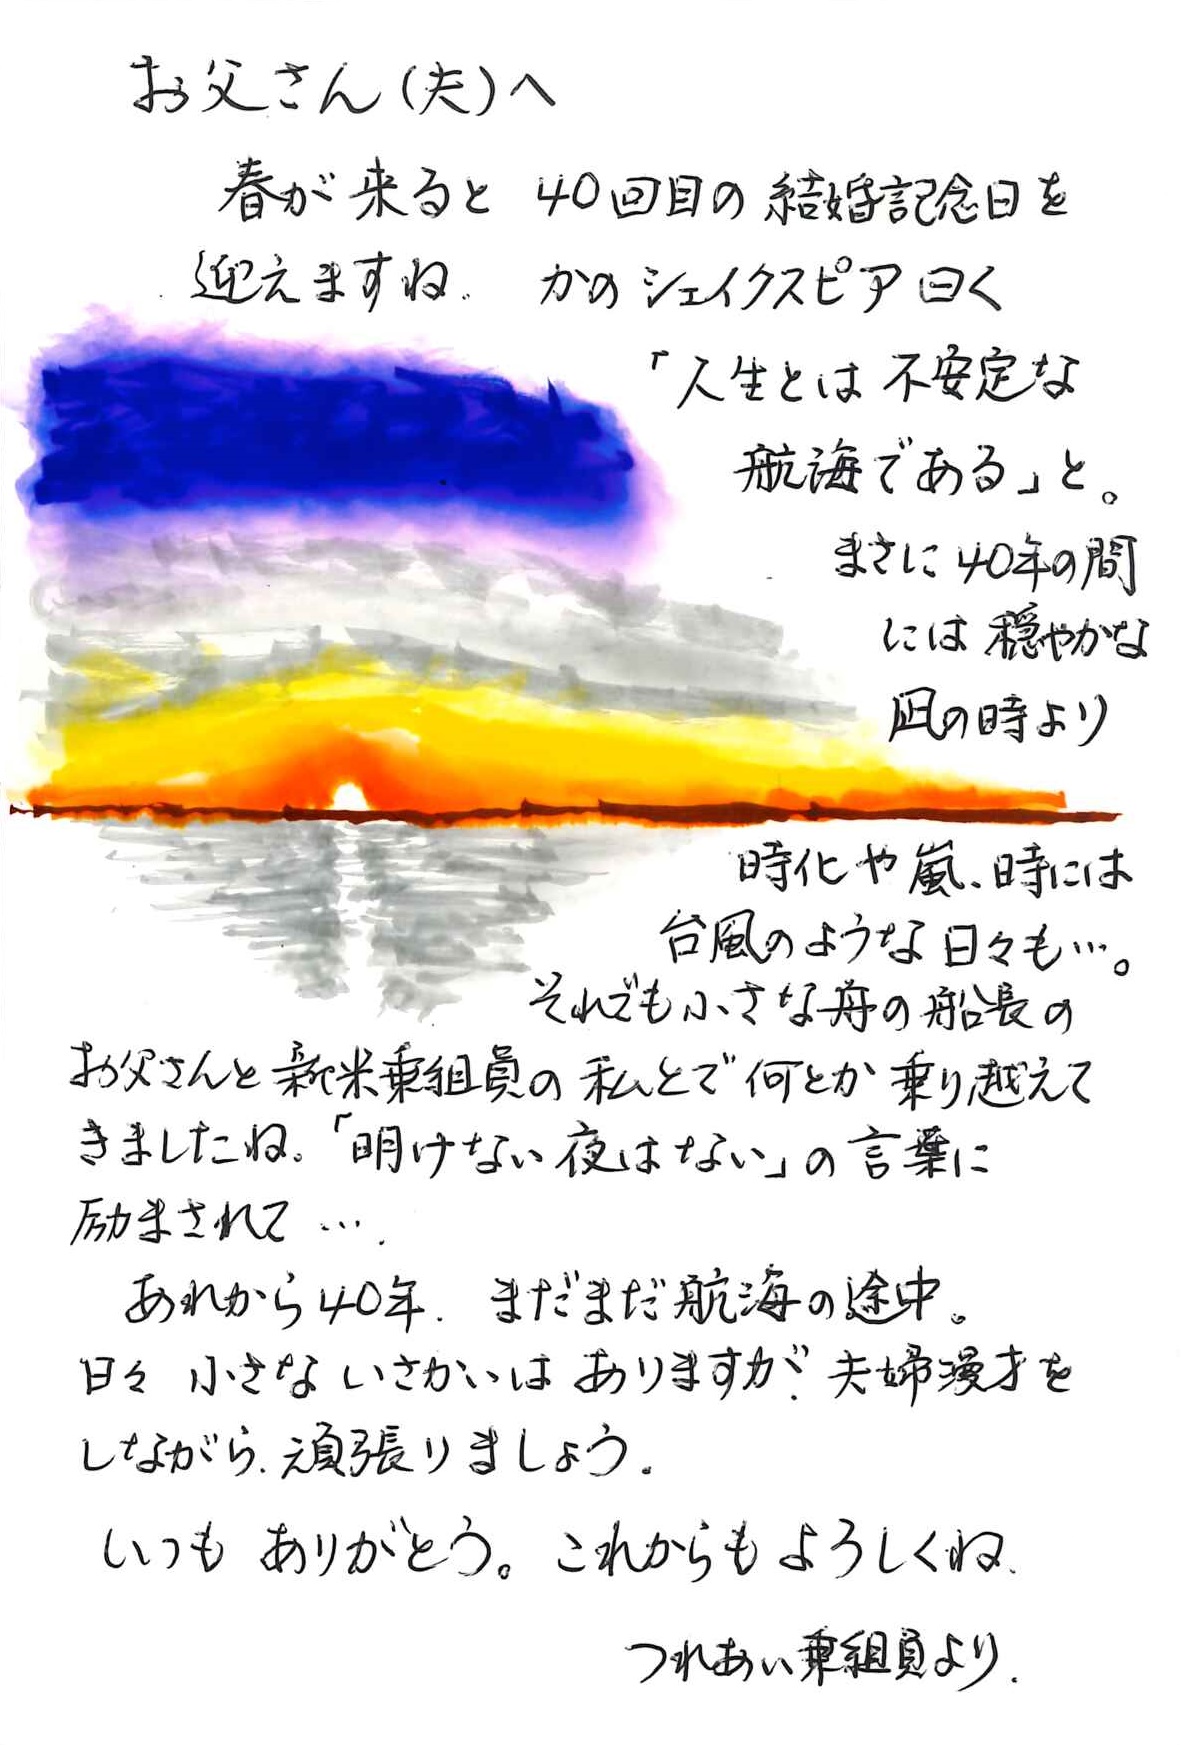 お父さん(夫)へ
春が来ると 40回目の結婚記念日を
迎えますね. かのシェイクスピア曰く
「人生とは不安定な
航海である」と。
まさに40年の間
には穏やかな
凪の時より
時化や嵐、時には
台風のような日々も…。
それでも小さな舟の船長の
お父さんと新米乗組員の私とで何とか乗り越えて
きましたね。「明けない夜はない」の言葉に
励まされて….
あれから40年. まだまだ航海の途中。
日々 小さないさかいはありますが、夫婦漫才を
しながら、頑張りましょう.
いつも ありがとう。これからもよろしくね.
つれあい乗組員より.